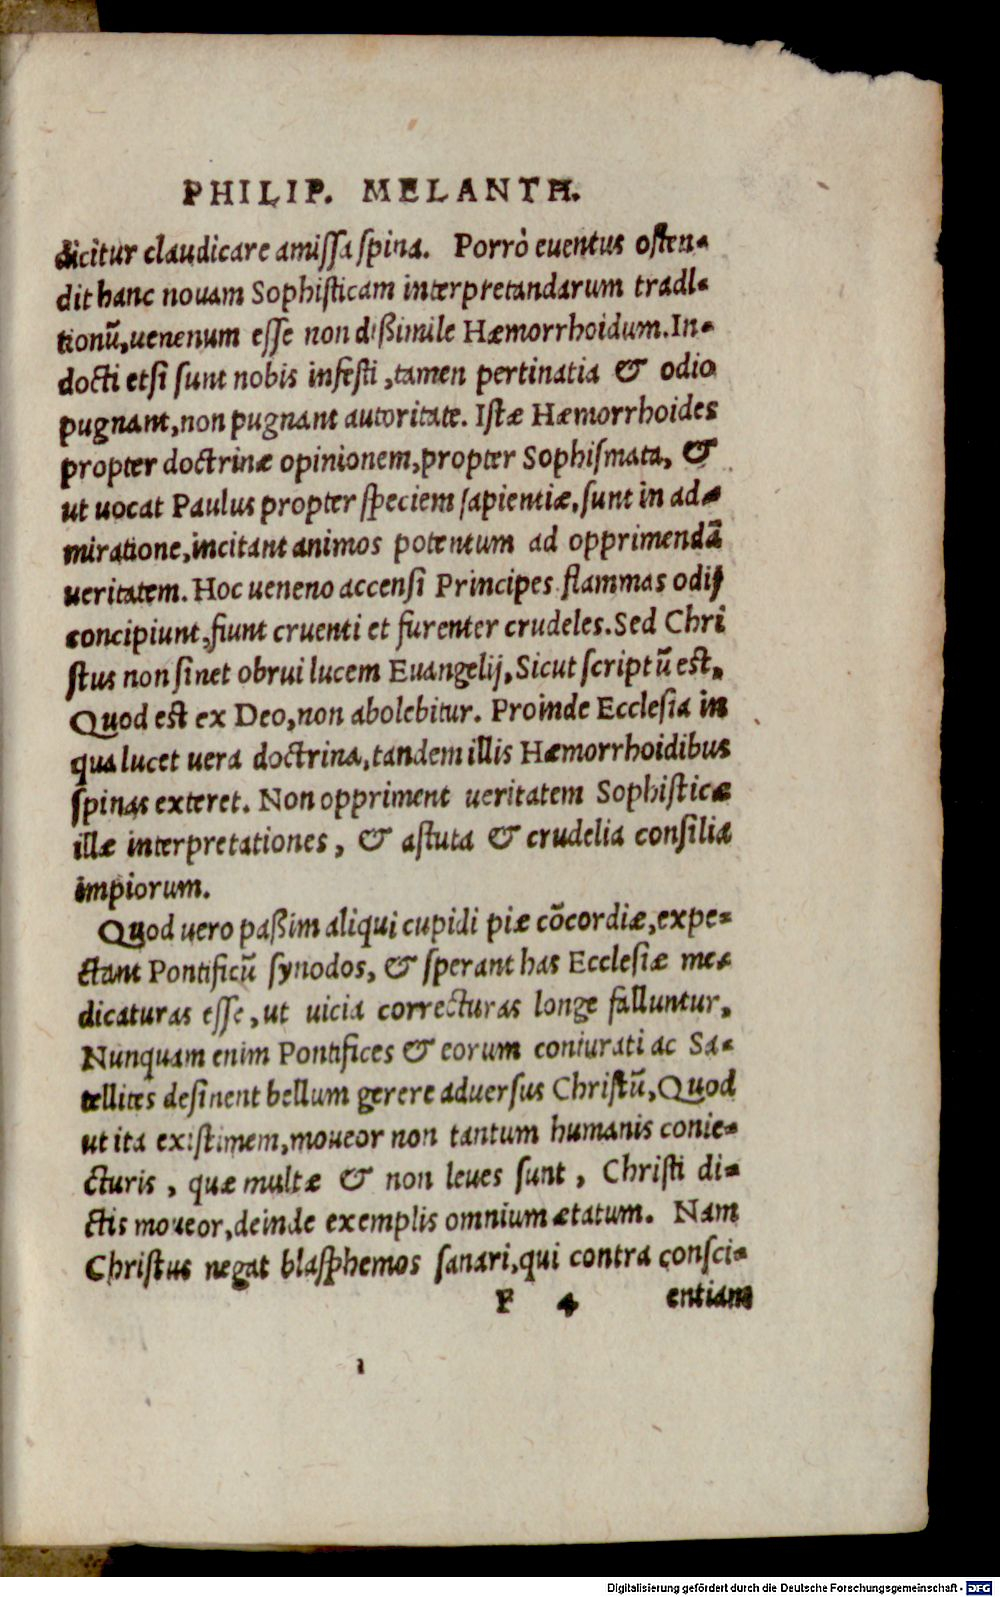 PHILIP. MELANTH.
dicitur claudicare amissa spina. Porrò euentus osten-
dit hanc nouam Sophisticam interpretandarum tradi-
tionũ, uenenum esse non dißimile Hæmorrhoidum. In-
docti etsi sunt nobis infesti, tamen pertinatia & odio
pugnant, non pugnant autoritate. Istæ Hæmorrhoides
propter doctrinæ opinionem, propter Sophismata, &
ut uocat Paulus propter speciem sapientiæ, sunt in ad-
miratione, incitant animos potentum ad opprimendã
ueritatem. Hoc ueneno accensi Principes flammas odij
concipiunt, fiunt cruenti et furenter crudeles. Sed Chri
stus non sinet obrui lucem Euangelij, Sicut scriptũ est,
Quod est ex Deo, non abolebitur. Proinde Ecclesia in
qua lucet uera doctrina, tandem illis Hæmorrhoidibus
spinas exteret. Non oppriment ueritatem Sophisticæ
illæ interpretationes, & astuta & crudelia consilia
impiorum.
Quod uero paßim aliqui cupidi piæ cõcordiæ, expe-
ctant Pontificũ synodos, & sperant has Ecclesiæ me-
dicaturas esse, ut uicia correcturas longe falluntur,
Nunquam enim Pontifices & eorum coniurati ac Sa-
tellites desinent bellum gerere aduersus Christũ, Quod
ut ita existimem, moueor non tantum humanis conie-
cturis, quæ multæ & non leues sunt, Christi di-
ctis moueor, deinde exemplis omnium ætatum. Nam
Christus negat blasphemos sanari, qui contra consci-
F 4 entiam
Digitalisierung gefördert durch die Deutsche Forschungsgemeinschaft - DFG